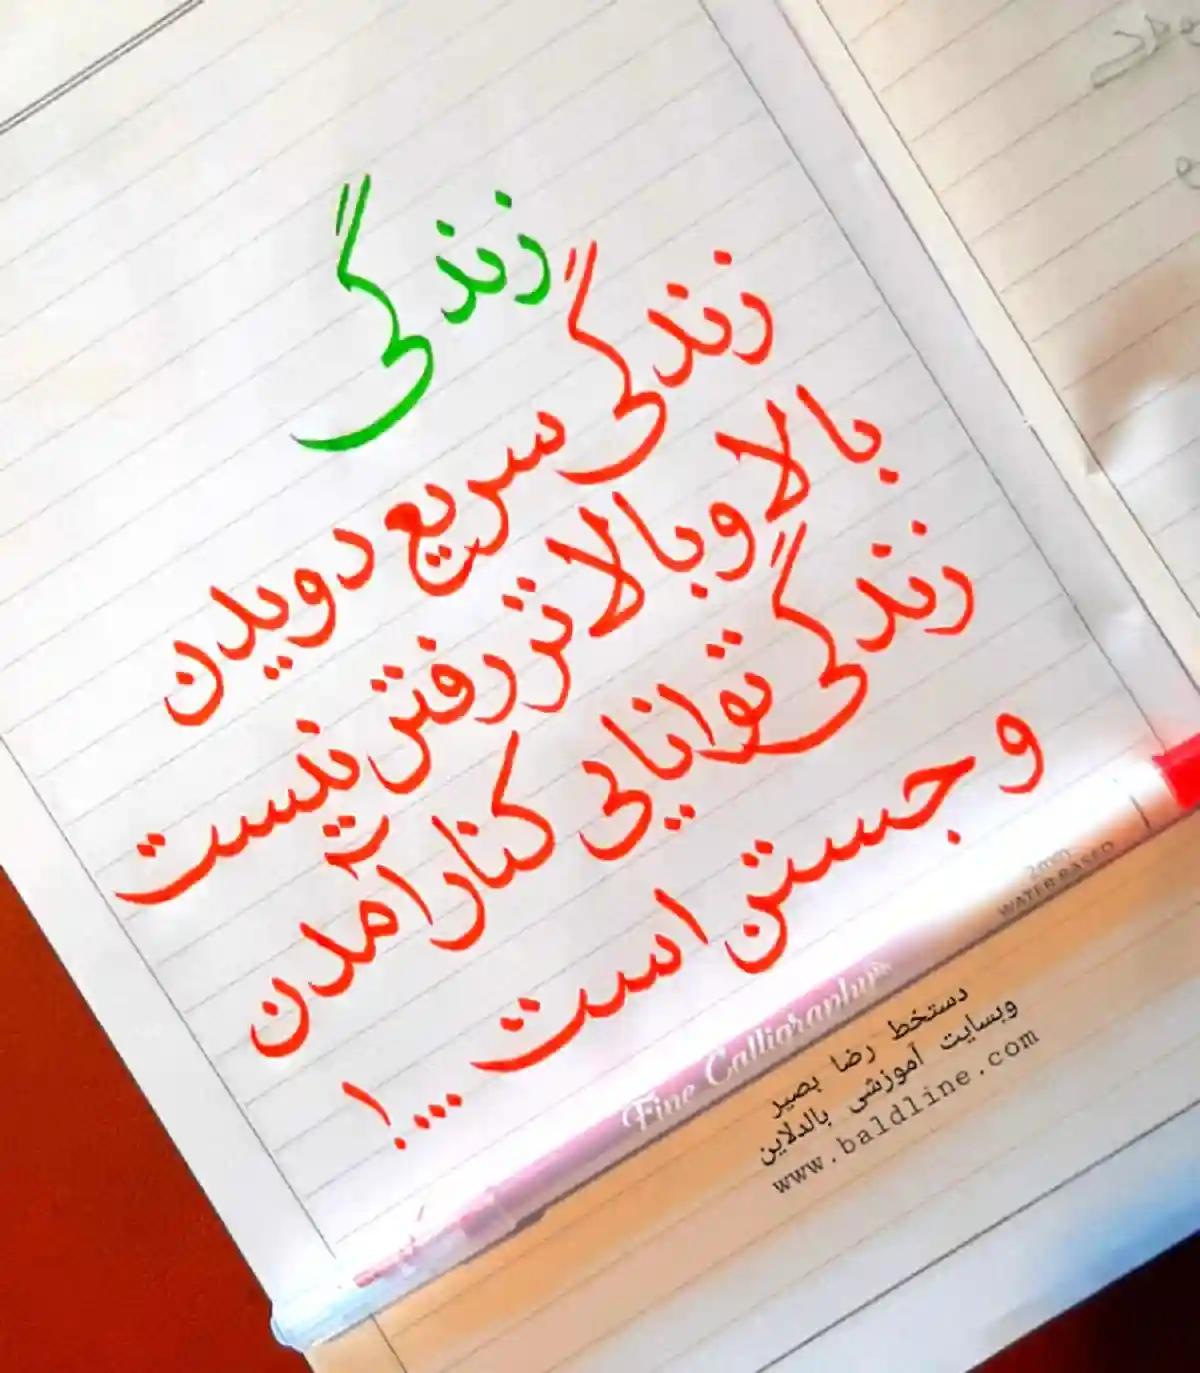 زندگی
زندگی سریع دویدن
بالا و بالاتر رفتن نیست
زندگی توانایی کنار آمدن
و جستن است ....!
2mm
WATER BASED
Fine Calligraphy
دستخط رضا بصیر
وبسایت آموزشی بالدلاین
www.baldline.com